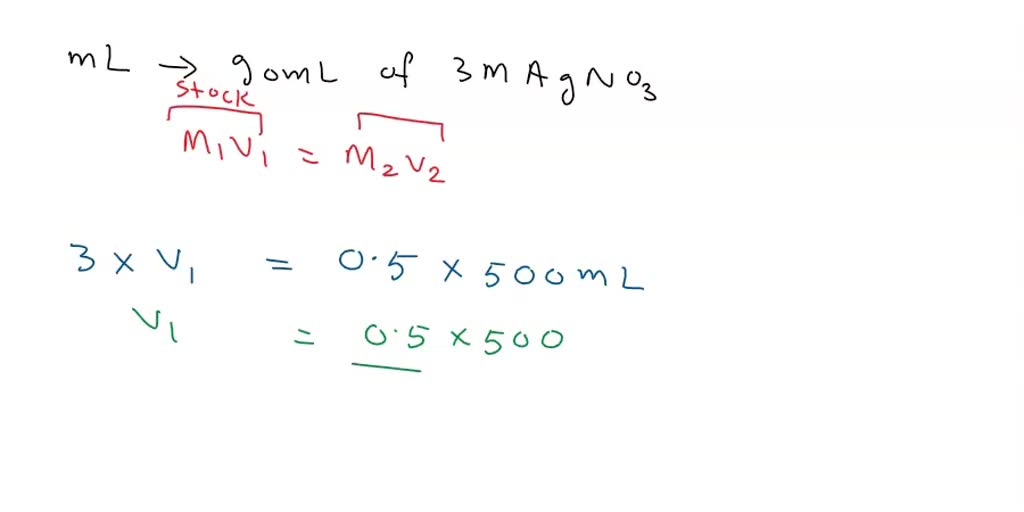 mL → 90mL of 3M AgNO3
Stock
M1V1 = M2V2
3 × V1 = 0.5 × 500mL
V1 = 0.5 × 500